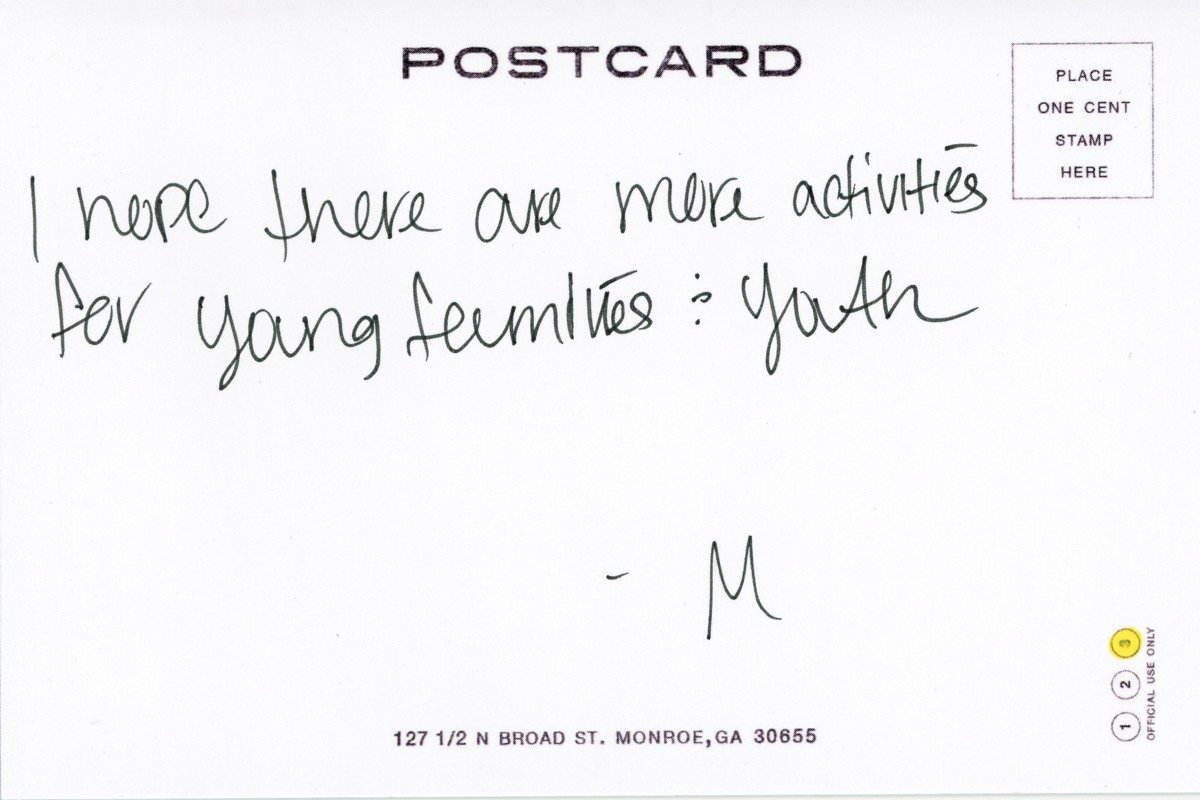 POSTCARD
PLACE
ONE CENT
STAMP
HERE
I hope there are more activities
for young families & youth
- M
127 1/2 N BROAD ST. MONROE, GA 30655
1 2 3
OFFICIAL USE ONLY